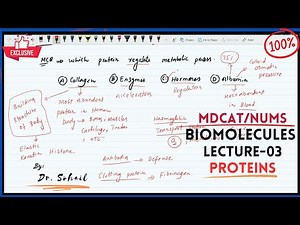 EXCLUSIVE
MCQ → which protein regulate metabolic process
100%
(A) Collagen (B) Enzymes (C) Hormones (D) Albumin
Colloid
Osmotic
pressure
Building
Structure
of Body
Most Abundant
protein in Human
Body → Bones, Muscles
Cartilage, Tendon
Accelerators
Regulators
Most abundant
in Blood
Haemoglobin
Transport
Elastin
Keratin Histone
Antibodies → Defense
Clotting protein → Fibrinogen
By:
Dr. Sohail
MDCAT/NUMS
BIOMOLECULES
LECTURE-03
PROTEINS